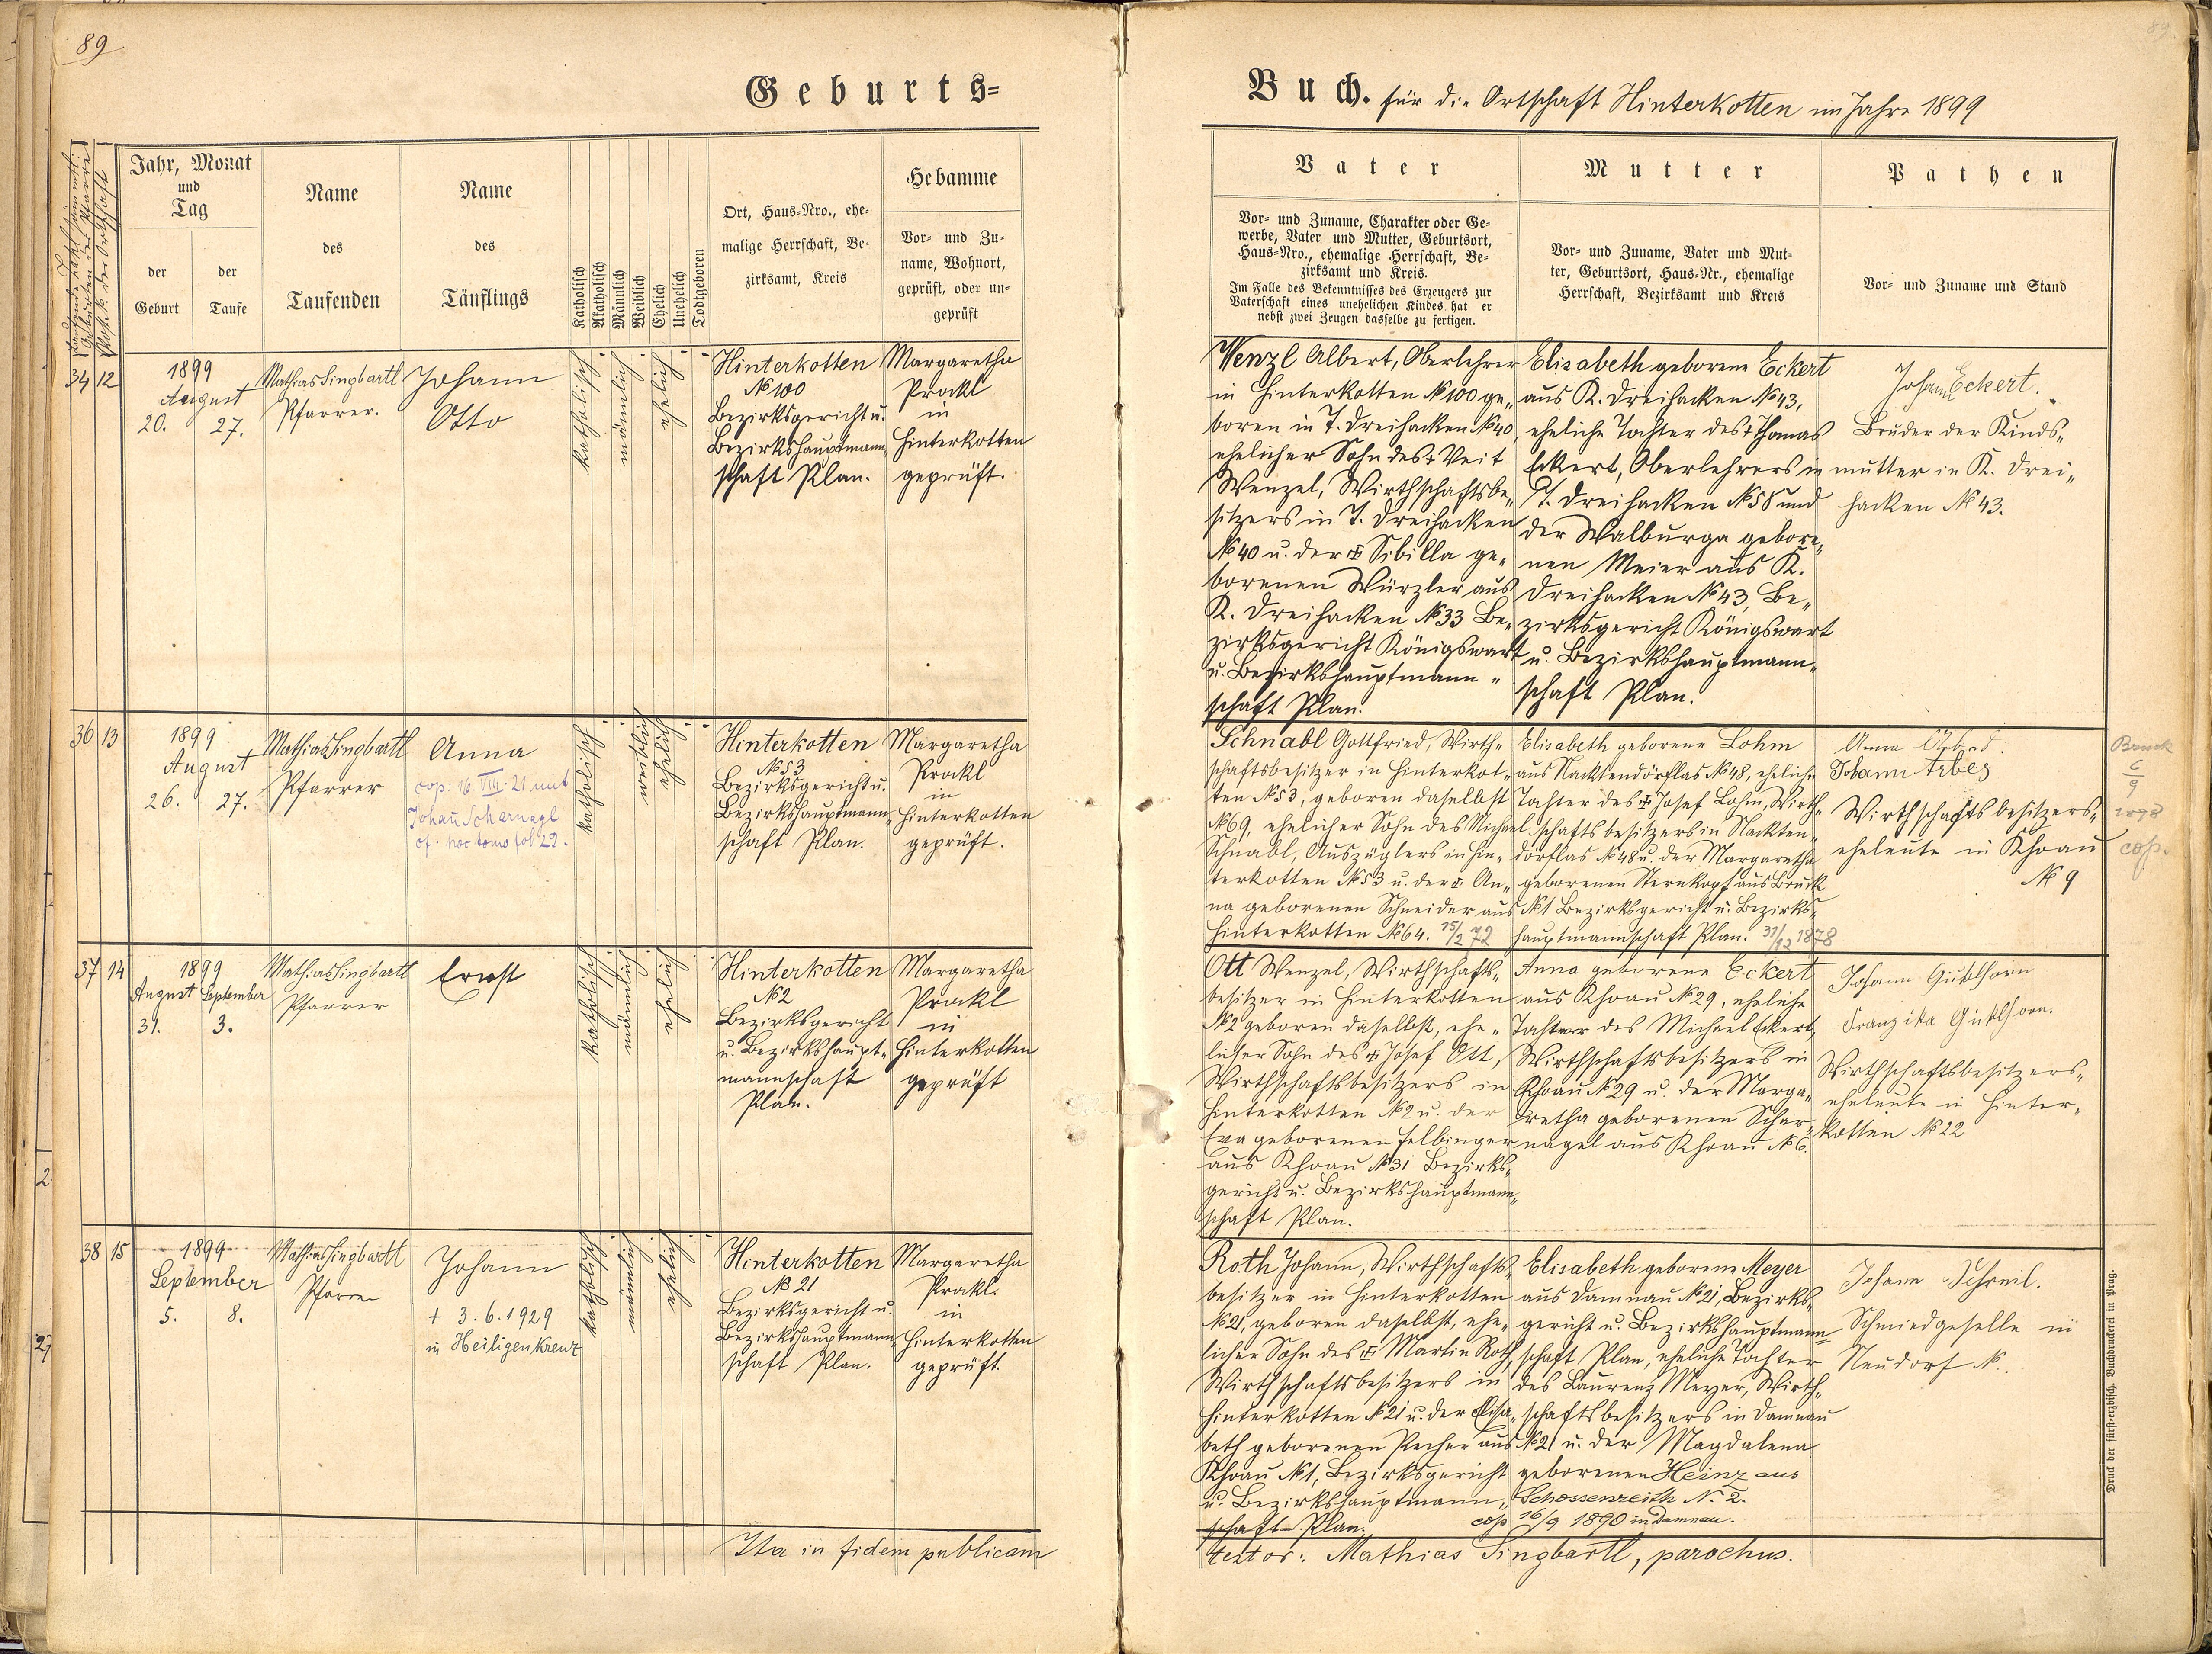 89
89
Geburts=
Buch. für die Ortschaft Hinterkotten im Jahre 1899
Jahr, Monat
und
Tag
der
Geburt
der
Taufe
Name
des
Taufenden
Name
des
Täuflings
Katholisch
Akatholisch
Männlich
Weiblich
Ehelich
Unehelich
Todtgeboren
Ort, Haus=Nro., ehe=
malige Herrschaft, Be=
zirksamt, Kreis
Hebamme
Vor= und Zu=
name, Wohnort,
geprüft, oder un=
geprüft
Vater
Vor= und Zuname, Charakter oder Ge=
werbe, Vater und Mutter, Geburtsort,
Haus=Nro., ehemalige Herrschaft, Be=
zirksamt und Kreis.
Im Falle des Bekenntnisses des Erzeugers zur
Vaterschaft eines unehelichen Kindes hat er
nebst zwei Zeugen dasselbe zu fertigen.
Mutter
Vor= und Zuname, Vater und Mut=
ter, Geburtsort, Haus=Nr., ehemalige
Herrschaft, Bezirksamt und Kreis
Pathen
Vor= und Zuname und Stand
34 12
1899
August
20. 27.
Mathias Singbartl
Pfarrer.
Johann
Otto
katholisch
männlich
ehelich
Hinterkotten
№ 100
Bezirksgericht u.
Bezirkshauptmann„
schaft Plan.
Margaretha
Prockl
in
Hinterkotten
geprüft.
Wenzl Albert, Oberlehrer
in Hinterkotten № 100 ge„
boren in T. Dreihacken № 40,
ehelicher Sohn des † Veit
Wenzel, Wirthschaftsbe„
sitzers in T. Dreihacken
№ 40 u. der † Sibilla ge„
borenen Würzler aus
K. Dreihacken № 33 Be„
zirksgericht Königswart
u. Bezirkshauptmann„
schaft Plan.
Elisabeth geborene Eckert
aus K. Dreihacken № 43,
eheliche Tochter des † Thomas
Eckert, Oberlehrers in
T. Dreihacken № 58 und
der Walburga gebore„
nen Meier aus K.
Dreihacken № 43, Be„
zirksgericht Königswart
u. Bezirkshauptmann„
schaft Plan.
Johann Eckert.
Bruder der Kinds„
mutter in K. Drei„
hacken № 43.
36 13
1899
August
26. 27.
Mathias Singbartl
Pfarrer
Anna
cop: 16. VIII. 21 mit
Johann Scharnagl
cf. hoc tomo fol 29.
katholisch
weiblich
ehelich
Hinterkotten
№ 53
Bezirksgericht u.
Bezirkshauptmann„
schaft Plan.
Margaretha
Prockl
in
Hinterkotten
geprüft.
Schnabl Gottfried, Wirth„
schaftsbesitzer in Hinterkot„
ten № 53, geboren daselbst
№ 69, ehelicher Sohn des Michael
Schnabl, Auszüglers in Hin„
terkotten № 53 u. der † An„
na geborenen Schneider aus
Hinterkotten № 64. 15/2 72
Elisabeth geborene Lohm
aus Nacktendörflas № 48, eheliche
Tochter des † Josef Lohm, Wirth„
schaftsbesitzers in Nackten„
dörflas № 48 u. der Margaretha
geborenen Sternkopf aus Bruck
№ 1 Bezirksgericht u. Bezirks„
hauptmannschaft Plan. 31/12 1878
Anna
Johann Arbes
Wirthschaftsbesitzers„
eheleute in Khoau
№ 9
Bruck
6
9
cop.
37 14
1899
August September
31. 3.
Mathias Singbartl
Pfarrer
Ernst
katholisch
männlich
ehelich
Hinterkotten
№ 2
Bezirksgericht
u. Bezirkshaupt„
mannschaft
Plan.
Margaretha
Prockl
in
Hinterkotten
geprüft
Ott Wenzel, Wirthschafts„
besitzer in Hinterkotten
№ 2 geboren daselbst, ehe„
licher Sohn des † Josef Ott,
Wirthschaftsbesitzers in
Hinterkotten № 2 u. der
Eva geborenen Felbinger
aus Khoau № 31 Bezirks„
gericht u. Bezirkshauptmann„
schaft Plan.
Anna geborene Eckert
aus Khoau № 29, eheliche
Tochter des Michael Eckert,
Wirthschaftsbesitzers in
Khoau № 29 u. der Marga„
retha geborenen Schar„
nagel aus Khoau № 6.
Johann
Franziska
Wirthschaftsbesitzers„
eheleute in Hinter„
kotten № 22
38 15
1899
September
5. 8.
Mathias Singbartl
Pfarrer
Johann
+ 3.6.1929
in Heiligenkreuz
katholisch
männlich
ehelich
Hinterkotten
№ 21
Bezirksgericht u.
Bezirkshauptmann„
schaft Plan.
Margaretha
Prockl.
in
Hinterkotten
geprüft.
Roth Johann, Wirthschafts„
besitzer in Hinterkotten
№ 21, geboren daselbst, ehe„
licher Sohn des † Martin Roth,
Wirthschaftsbesitzers in
Hinterkotten № 21 u. der Elisa„
beth geborenen Pecher aus
Khoau № 1, Bezirksgericht
u. Bezirkshauptmann„
schaft Plan.
Elisabeth geborene Meyer
aus Damnau № 21, Bezirks„
gericht u. Bezirkshauptmann„
schaft Plan, eheliche Tochter
des Laurenz Meyer, Wirth„
schaftsbesitzers in Damnau
№ 21 u. der Magdalena
geborenen Heinz aus
Schossenreith N. 2.
cop 16/9 1890 in Damnau.
Johann
Schmiedgeselle in
Neudorf №.
Ita in fidem publicam
testor: Mathias Singbartl, parochus.
Druck der fürst=erzbisch. Buchdruckerei in Prag.